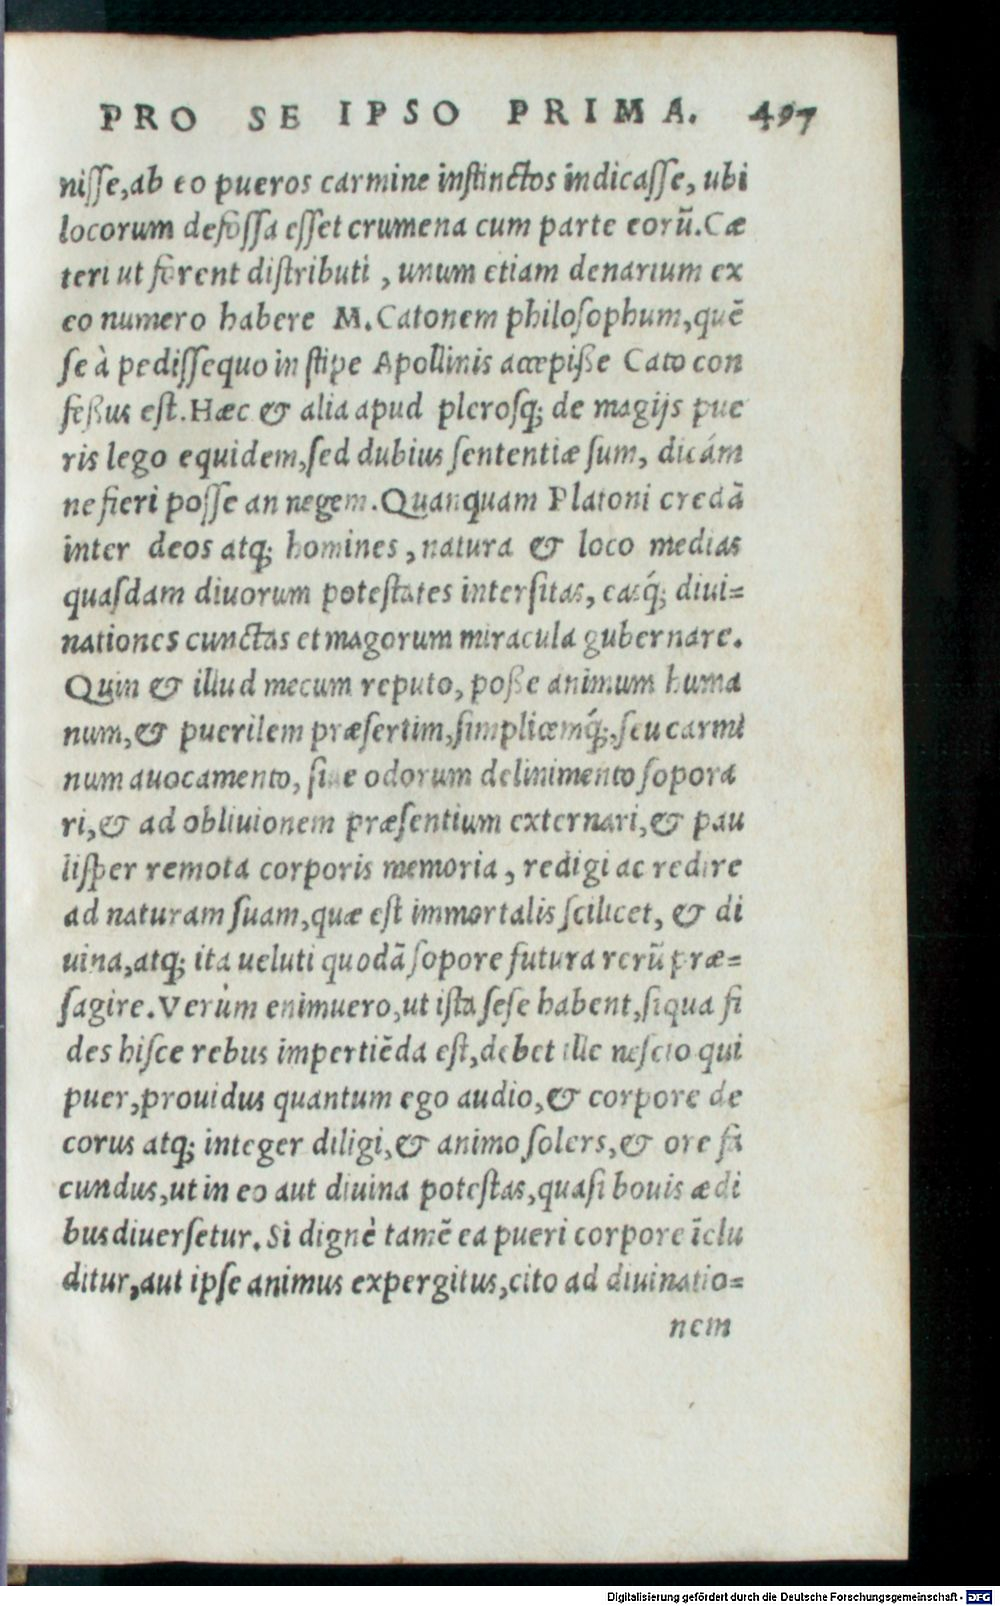 PRO SE IPSO PRIMA. 497
niſſe,ab eo pueros carmine inſtinctos indicaſſe, ubi
locorum defoſſa eſſet crumena cum parte eorū.Cæ
teri ut forent diſtributi , unum etiam denarium ex
eo numero habere M.Catonem philoſophum,quē
ſe à pediſſequo in ſtipe Apollinis accepiße Cato con
feßus eſt.Hæc & alia apud pleroſq; de magijs pue
ris lego equidem,ſed dubius ſententiæ ſum, dicám
ne fieri poſſe an negem.Quanquam Platoni credā
inter deos atq; homines , natura & loco medias
quaſdam diuorum poteſtates interſitas, eaſq́; diui=
nationes cunctas et magorum miracula gubernare.
Quin & illud mecum reputo, poße animum huma
num,& puerilem præſertim,ſimplicemq́;,ſeu carmi
num auocamento, ſiue odorum delinimento ſopora
ri,& ad obliuionem præſentium externari,& pau
liſper remota corporis memoria , redigi ac redire
ad naturam ſuam,quæ eſt immortalis ſcilicet, & di
uina,atq; ita ueluti quodā ſopore futura rerū præ=
ſagire.Verùm enimuero,ut iſta ſeſe habent,ſiqua fi
des hiſce rebus impertiēda eſt,debet ille neſcio qui
puer,prouidus quantum ego audio,& corpore de
corus atq; integer diligi,& animo ſolers,& ore fa
cundus,ut in eo aut diuina poteſtas,quaſi bouis ædi
bus diuerſetur.Si dignè tamē ea pueri corpore īclu
ditur,aut ipſe animus expergitus,cito ad diuinatio=
nem
Digitalisierung gefördert durch die Deutsche Forschungsgemeinschaft - DFG